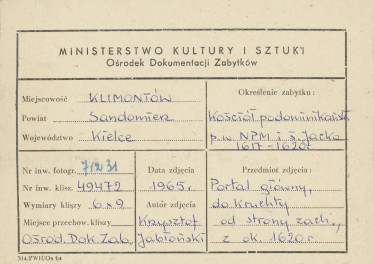 MINISTERSTWO KULTURY I SZTUKI
Ośrodek Dokumentacji Zabytków
Miejscowość KLIMONTÓW
Powiat Sandomierz
Województwo Kielce
Określenie zabytku:
Kościół podominikański
p.w. NPM i ś. Jacka
1617-1620r
Nr inw. fotogr. 71231
Nr inw. klisz. 49472
Wymiary kliszy 6x9
Miejsce przechow. kliszy
Ośrod. Dok. Zab.
Data zdjęcia
1965r.
Autor zdjęcia
Krzysztof
Jabłoński
Przedmiot zdjęcia:
Portal główny,
do kruchty
od strony zach.,
z ok. 1620r.